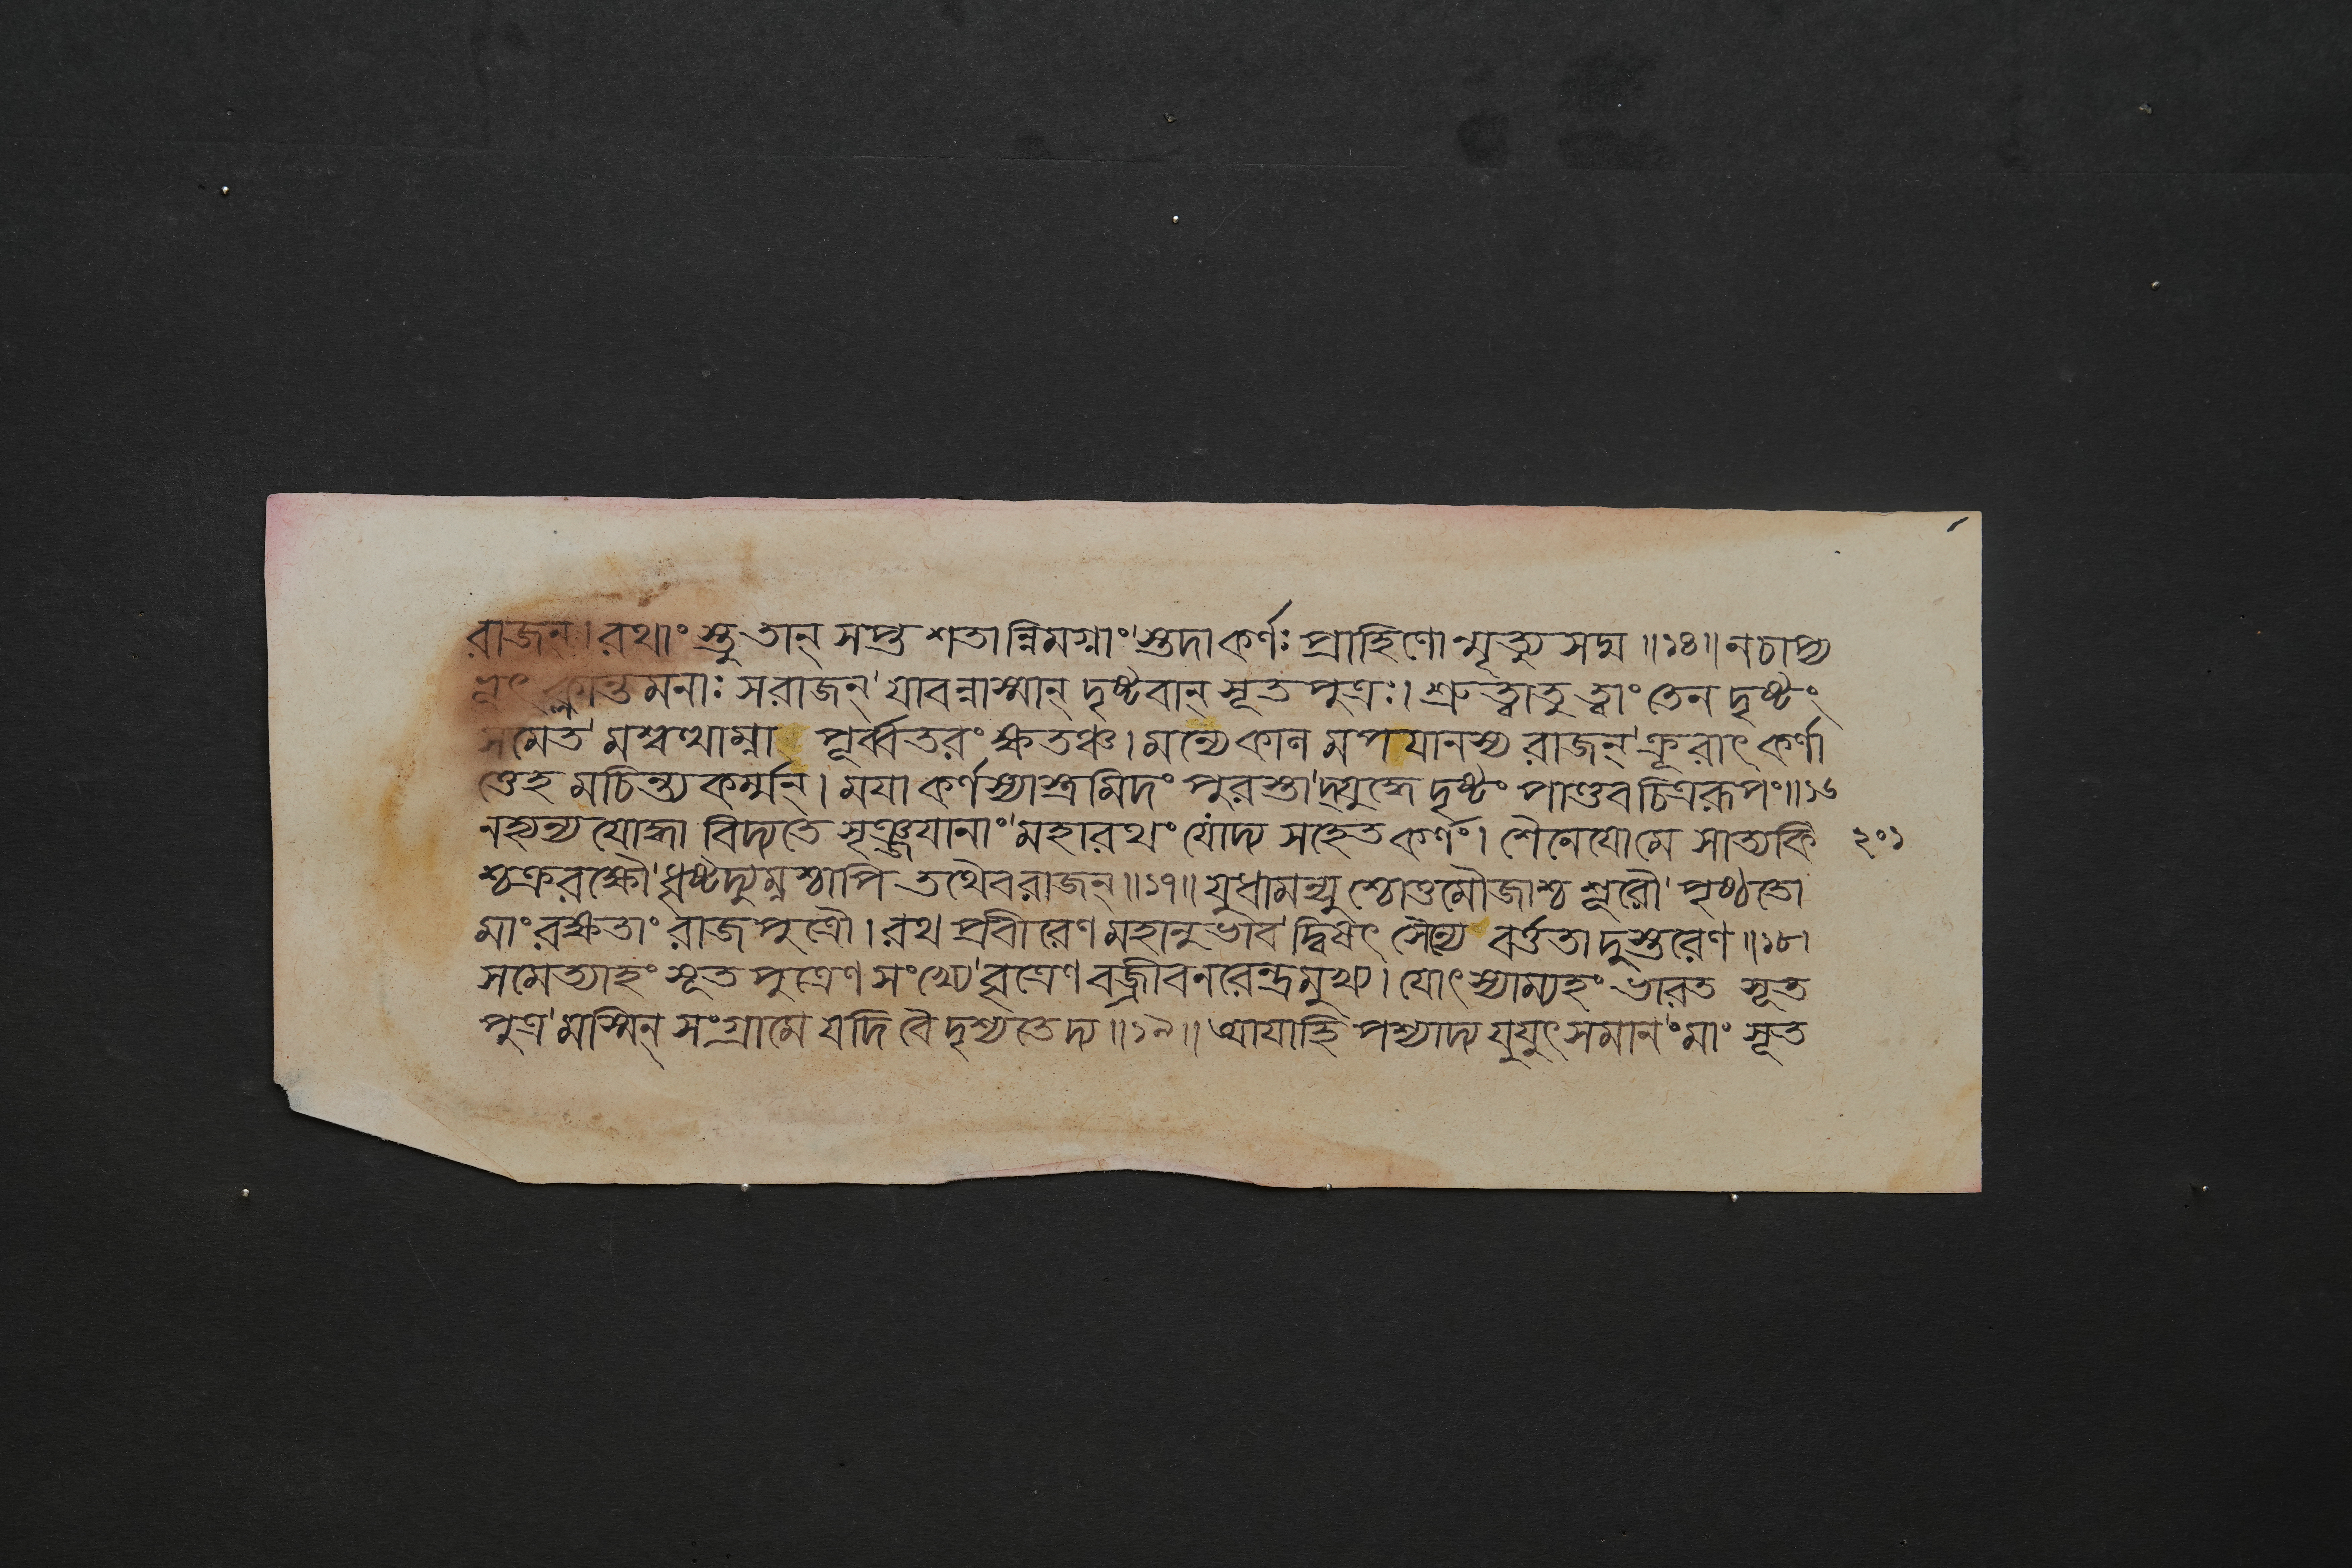 রাজন্।রথাংস্তু তান্ সপ্ত শতান্নিমগ্নাং'স্তদাকর্ণঃ প্রাহিণোন্মৃত্যু সদ্ম॥১৪॥ নচাপ্য
ভূৎ ক্লান্তমনাঃ সরাজন্'যাবন্নাস্মান্ দৃষ্টবান্ সূতপুত্রঃ। শ্রুত্বাতু ত্বাং তেন দৃষ্টং
সমেত'মশ্বত্থাম্না পূর্ব্বতরং ক্ষতঞ্চ। মন্যেকালমপযানস্য রাজন্'ক্রূরাৎ কর্ণা
ত্তেহমচিন্ত্যকর্ম্মন্। ময়া কর্ণস্যাস্ত্রমিদং পুরস্তা'দ্যুদ্ধে দৃষ্টং পাণ্ডবচিত্ররূপং॥১৬
নহ্যন্য যোদ্ধা বিদ্যতে সৃঞ্জয়ানাং'মহারথং যোদ্য সহেত কর্ণং। শৈনেযোমে সাত্যকি ২০১
শ্চক্ররক্ষৌ'ধৃষ্টদ্যুম্নশ্চাপি তথৈব রাজন্॥১৭॥ যুধামন্যুশ্চোত্তমৌজাশ্চ শূরৌ'পৃষ্ঠতো
মাং রক্ষতাং রাজপুত্রৌ। রথপ্রবীরেণ মহানুভাব'দ্বিষৎ সৈন্যে বর্ত্ততা দুস্তরেণ॥১৮।
সমেত্যাহং সূতপুত্রেণ সংখ্যে'বৃত্রেণ বজ্রীবনরেন্দ্রমুখ্য। যোৎস্যাম্যহং ভারত সূত
পুত্র'মস্মিন্ সংগ্রামে যদি বৈ দৃশ্যতেদ্য॥১৯॥ আযাহি পশ্যাদ্য যুযুৎসমানং'মাং সূত